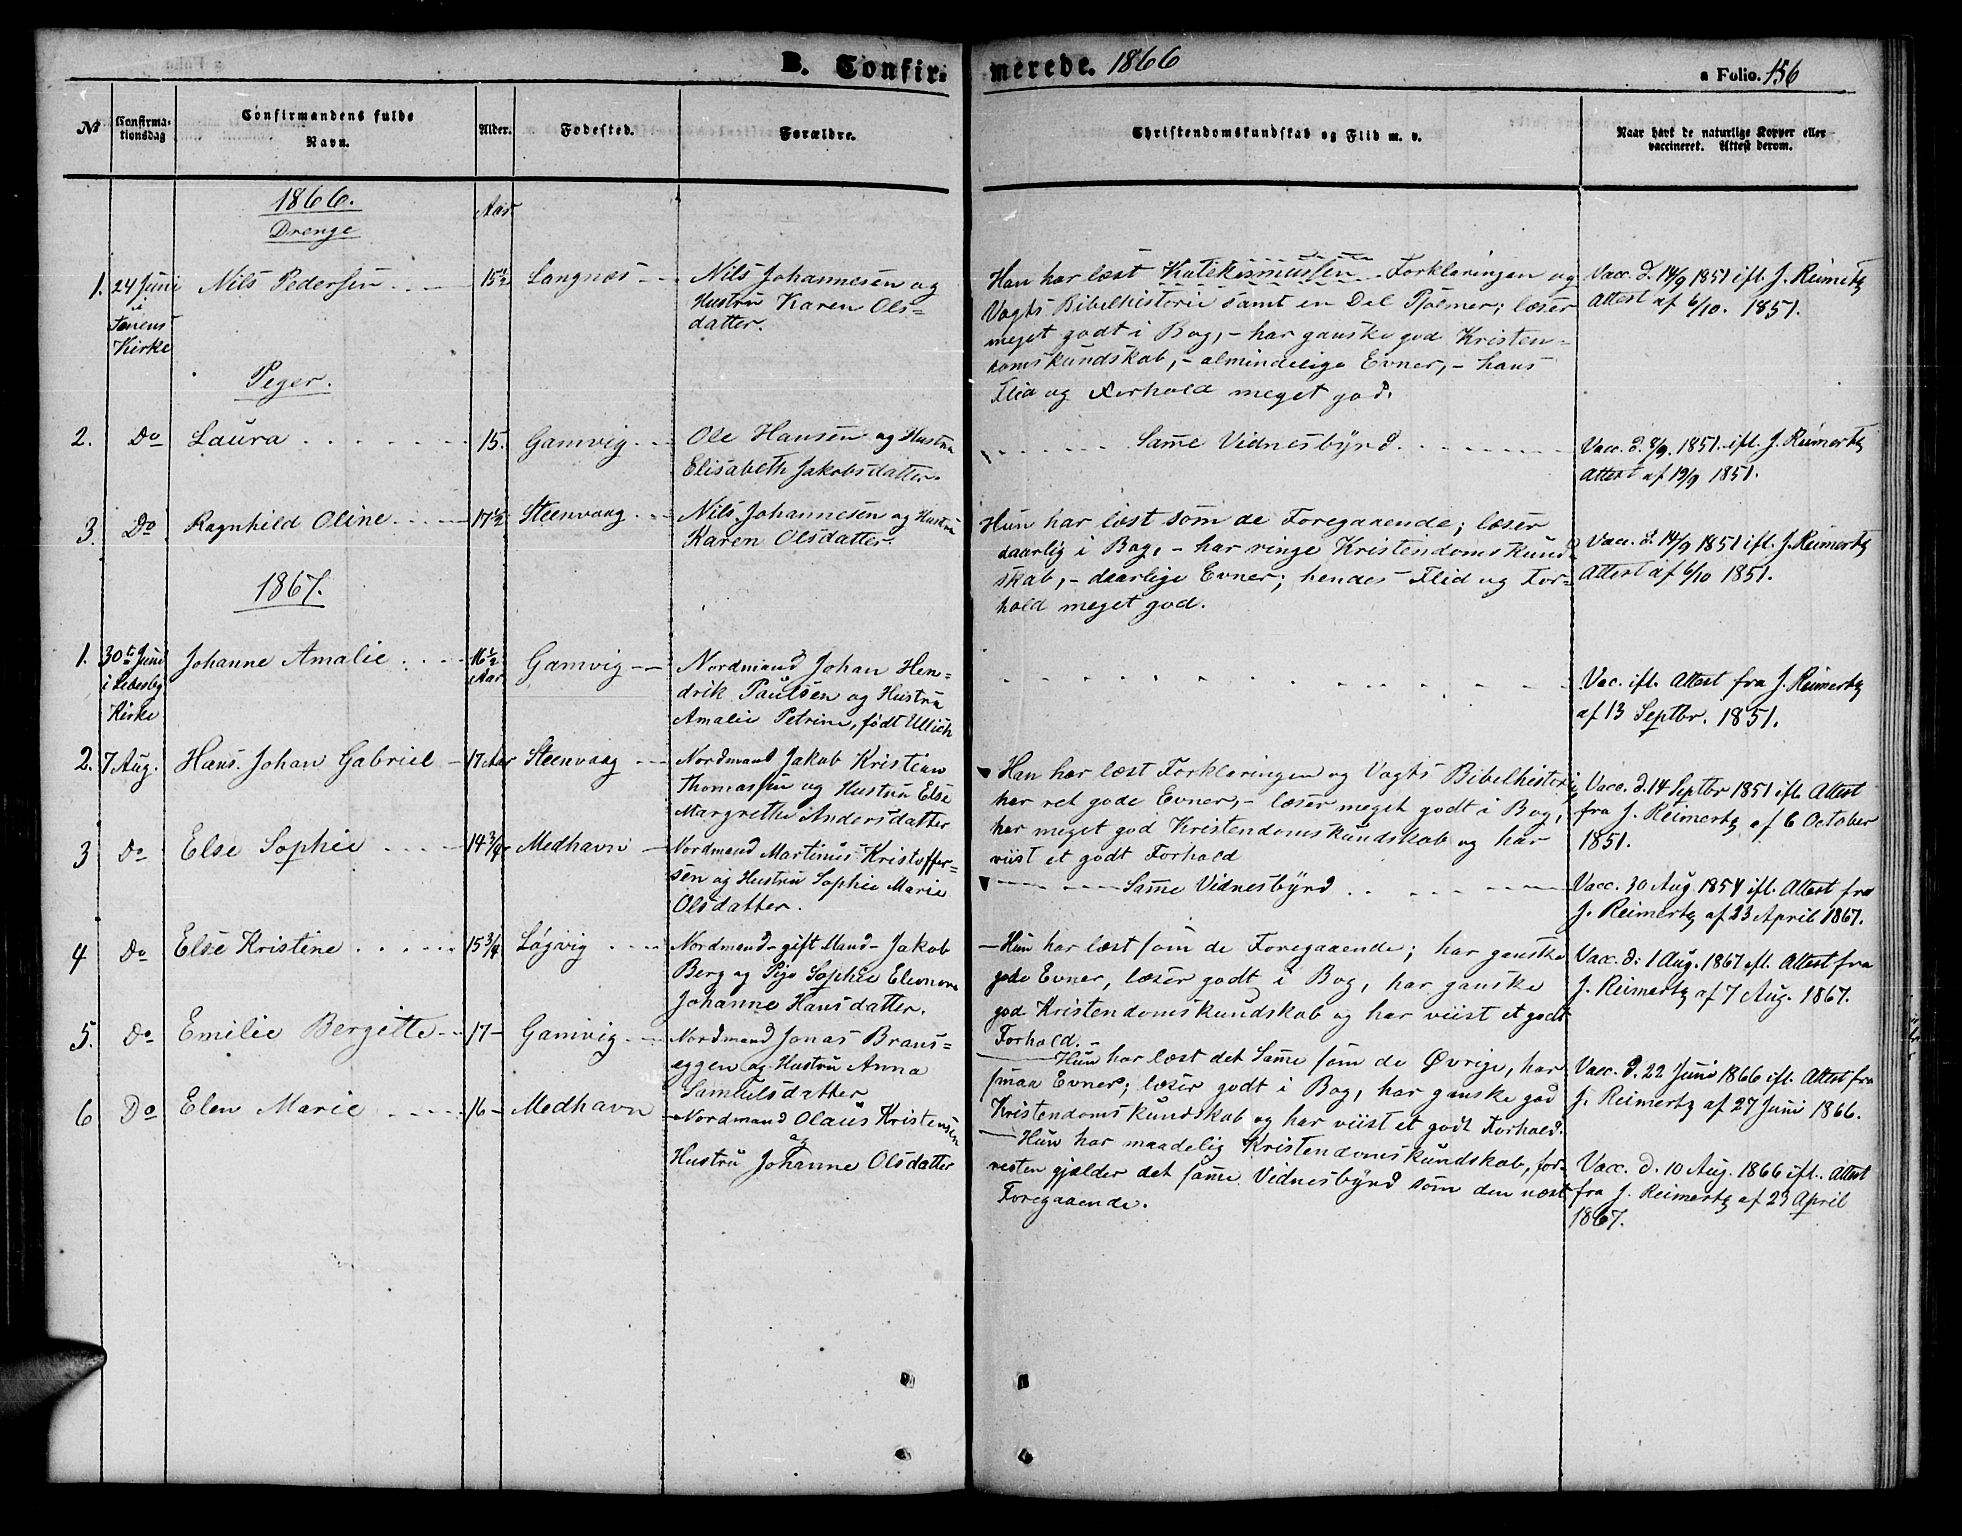 B. Confirmerede. 1866
a Folio. 156
№
Confirmationsdag
Confirmandens fulde
Navn.
Alder.
Fødested.
Forældre.
Christendomskundskab og Flid m. v.
Naar havt de naturlige Kopper eller
vaccineret. Attest derom.
1866.
Drenge
Aar
1.
24 Juni
i
Kirke
Nils Pedersen
15½
Langnæs
Nils Johannesen og
Hustru Karen Ols-
datter.
Han har læst Katekismussen Forklaringen og
Vogts Bibelhistorie samt en Del Psalmer; læser
meget godt i Bog, - har ganske god Kristen-
domskundskab, - almindelige Evner, - hans
Flid og Forhold meget god.
Vacc. d. 14/9 1851 ifl. J. Reimertz
Attest af 6/10. 1851.
Piger.
2.
Do
Laura
15.
Gamvig
Ole Hansen og Hustru
Elisabeth Jakobsdatter
Same Vidnesbyrd.
Vacc. d. 8/9. 1851. ifl. J. Reimertz
Attest af 19/9 1851.
3.
Do
Ragnhild Oline
17½
Steenvaag
Nils Johannesen og Hustru
Karen Olsdatter
Hun har læst som de Foregaaende; læser
daarlig i Bog, - har ringe Kristendomskund-
skab, - daarlige Evner; hendes Flid og For-
hold meget god.
Vacc. d. 14/9 1851 ifl. J. Reimertz
Attest af 6/10 1851.
1867.
1.
30te Juni
i Lebesby
Kirke
Johanne Amalie
16½
Aar
Gamvig
Nordmand Johan Hen-
drik Paulsen og Hustru
Amalie Petrine, født Ullich
Vac. ifl. Attest fra J. Reimertz
af 13 Septbr. 1851.
2.
7 Aug.
Hans Johan Gabriel
17 Aar
Steenvaag
Nordmand Jakob Kristian
Thomassen og Hustru Else
Margrethe Andersdatter
Han har læst Forklaringen og Vogts Bibelhistorie,
har ret gode Evner, - læser meget godt i Bog,
har meget god Kristendomskundskab og har
viist et godt Forhold
Vacc. d. 14 Septbr 1851 ifl. Attest
fra J. Reimertz af 6 October
1851.
3
Do
Else Sophie
14 3/4
Medhavn
Nordmand Martinus Kristoffer-
sen og Hustru Sophie Marie
Olsdatter.
Same Vidnesbyrd
Vacc. 30 Aug. 1854 ifl. Attest fra
J. Reimertz af 23 April 1867.
4
Do
Else Kristine
15 3/4
Løgvig
Nordmand - gift Mand - Jakob
Berg og Pige Sophie Eleonora
Johanne Hansdatter.
Hun har læst som de Foregaaende; har ganske
gode Evner, læser godt i Bog, har ganske
god Kristendomskundskab og har viist et godt
Forhold.
Vacc. d. 1 Aug. 1867 ifl. Attest fra
J. Reimertz af 7 Aug. 1867.
5.
Do
Emilie Bergitte
17
Gamvig
Nordmand Jonas Brans-
eggen og Hustru Anna
Samuelsdatter
Hun har læst det Same som de Øvrige, har
smaa Evner; læser godt i Bog, har ganske god
Kristendomskundskab og har viist et godt Forhold.
Vacc. d. 22 Juni 1866 ifl. Attest fra
J. Reimertz af 27 Juni 1866.
6
Do
Elen Marie
16
Medhavn
Nordmand Olaus Kristensen
og
Hustru Johanne Olsdatter
Hun har maadelig Kristendomskundskab, for-
resten gjælder det same Vidnesbyrd som den næst
Foregaaende.
Vacc. d. 10 Aug. 1866 ifl. Attest
fra J. Reimertz af 23 April
1867.